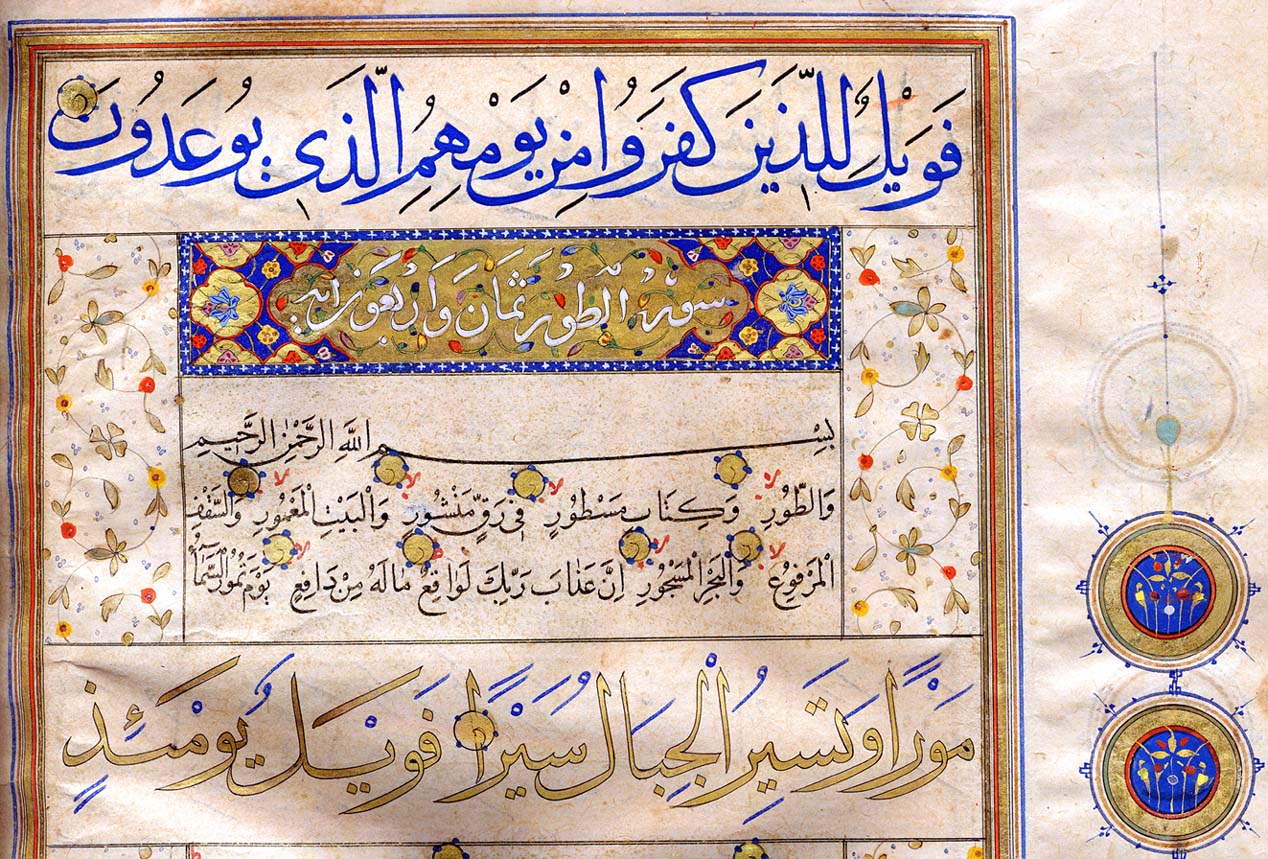 فَوَيْلٌ لِلَّذِينَ كَفَرُوا مِنْ يَوْمِهِمُ الَّذِي يُوعَدُونَ
سورة الطور ثمان واربعون اية
بِسْمِ اللَّهِ الرَّحْمَٰنِ الرَّحِيمِ
وَالطُّورِ وَكِتَابٍ مَسْطُورٍ فِي رَقٍّ مَنْشُورٍ وَالْبَيْتِ الْمَعْمُورِ وَالسَّقْفِ
الْمَرْفُوعِ وَالْبَحْرِ الْمَسْجُورِ إِنَّ عَذَابَ رَبِّكَ لَوَاقِعٌ مَالَهُ مِنْ دَافِعٍ يَوْمَ تَمُورُ السَّمَآءُ
مَوْرًا وَتَسِيرُ الْجِبَالُ سَيْرًا فَوَيْلٌ يَوْمَئِذٍ